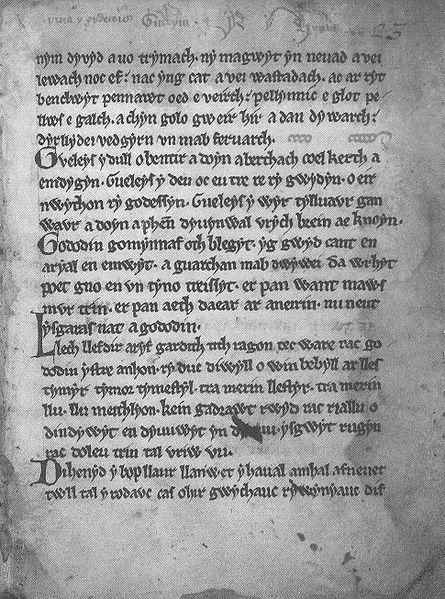 23
nym dyvyd a uo trymach. ny magwyt yn neuad a vei
lewach noc ef. nac yng cat a vei wastadach. ac ar ryt
benclwyt pennawt oed e veirch. pellynnic e glot pe-
llws e galch. a chyn golo gweir hir a dan dywarch.
dyrllydei vedgyrn vn mab feruarch.
Gveleys y dull o bentir a doyn aberthach coel kerth a
emdygyn. Gueleys y deu oc eu tre re ry gwydyn. o eir
nwython ry godessyn. Gueleys y wyr tylluavr gan
wavr a doyn a phen dyuynwal vrych brein ae knoyn.
Gododin gomynnaf oth blegyt. yg gwyd cant en
aryal en emwyt. a guarchan mab dwywei da wrhyt
poet gno en vn tyno treissyt. er pan want maws
mvr trin. er pan aeth daear ar aneirin. nu neut
ysgaras nat a gododin.
Llech llefdir aryf gardith tith ragon tec ware rac go
dodin ystre anhon. ry duc diwyll o win bebyll ar lles
tymyr. tymor tymestyl. tra merin llestyr. tra merin
llu. llu meithlyon. kein gadrawt rwyd rac riallu o
dindywyt en dyuuwyt yn ysgwyt rugyn
rac doleu trin tal vriw vu.
Dihenyd y bop llaur llanwet y haual amhal afneuet
twll tal y rodavc cas ohir gwythauc rywynyauc dif